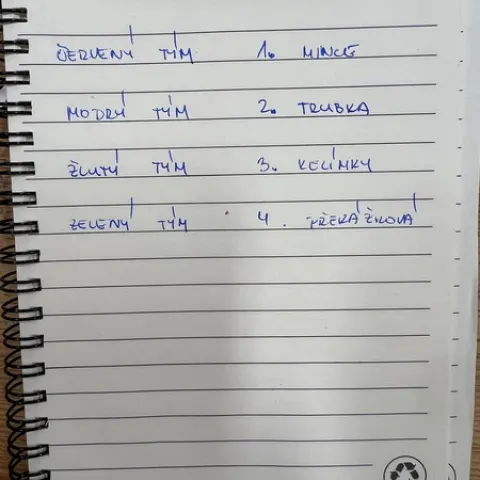 ČERVENÝ TÝM 1. MINCE
MODRÝ TÝM 2. TRUBKA
ŽLUTÝ TÝM 3. KELÍMKY
ZELENÝ TÝM 4. PŘEKÁŽKOVÁ